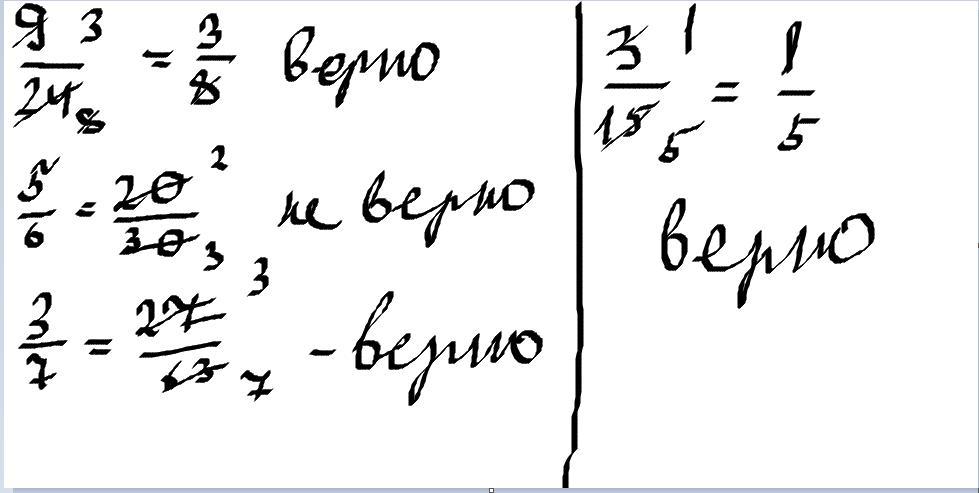 9/24 3 8 = 3/8 верно
5/6 = 20/30 2 3 не верно
3/7 = 27/63 3 7 - верно
3/15 1 5 = 1/5
верно